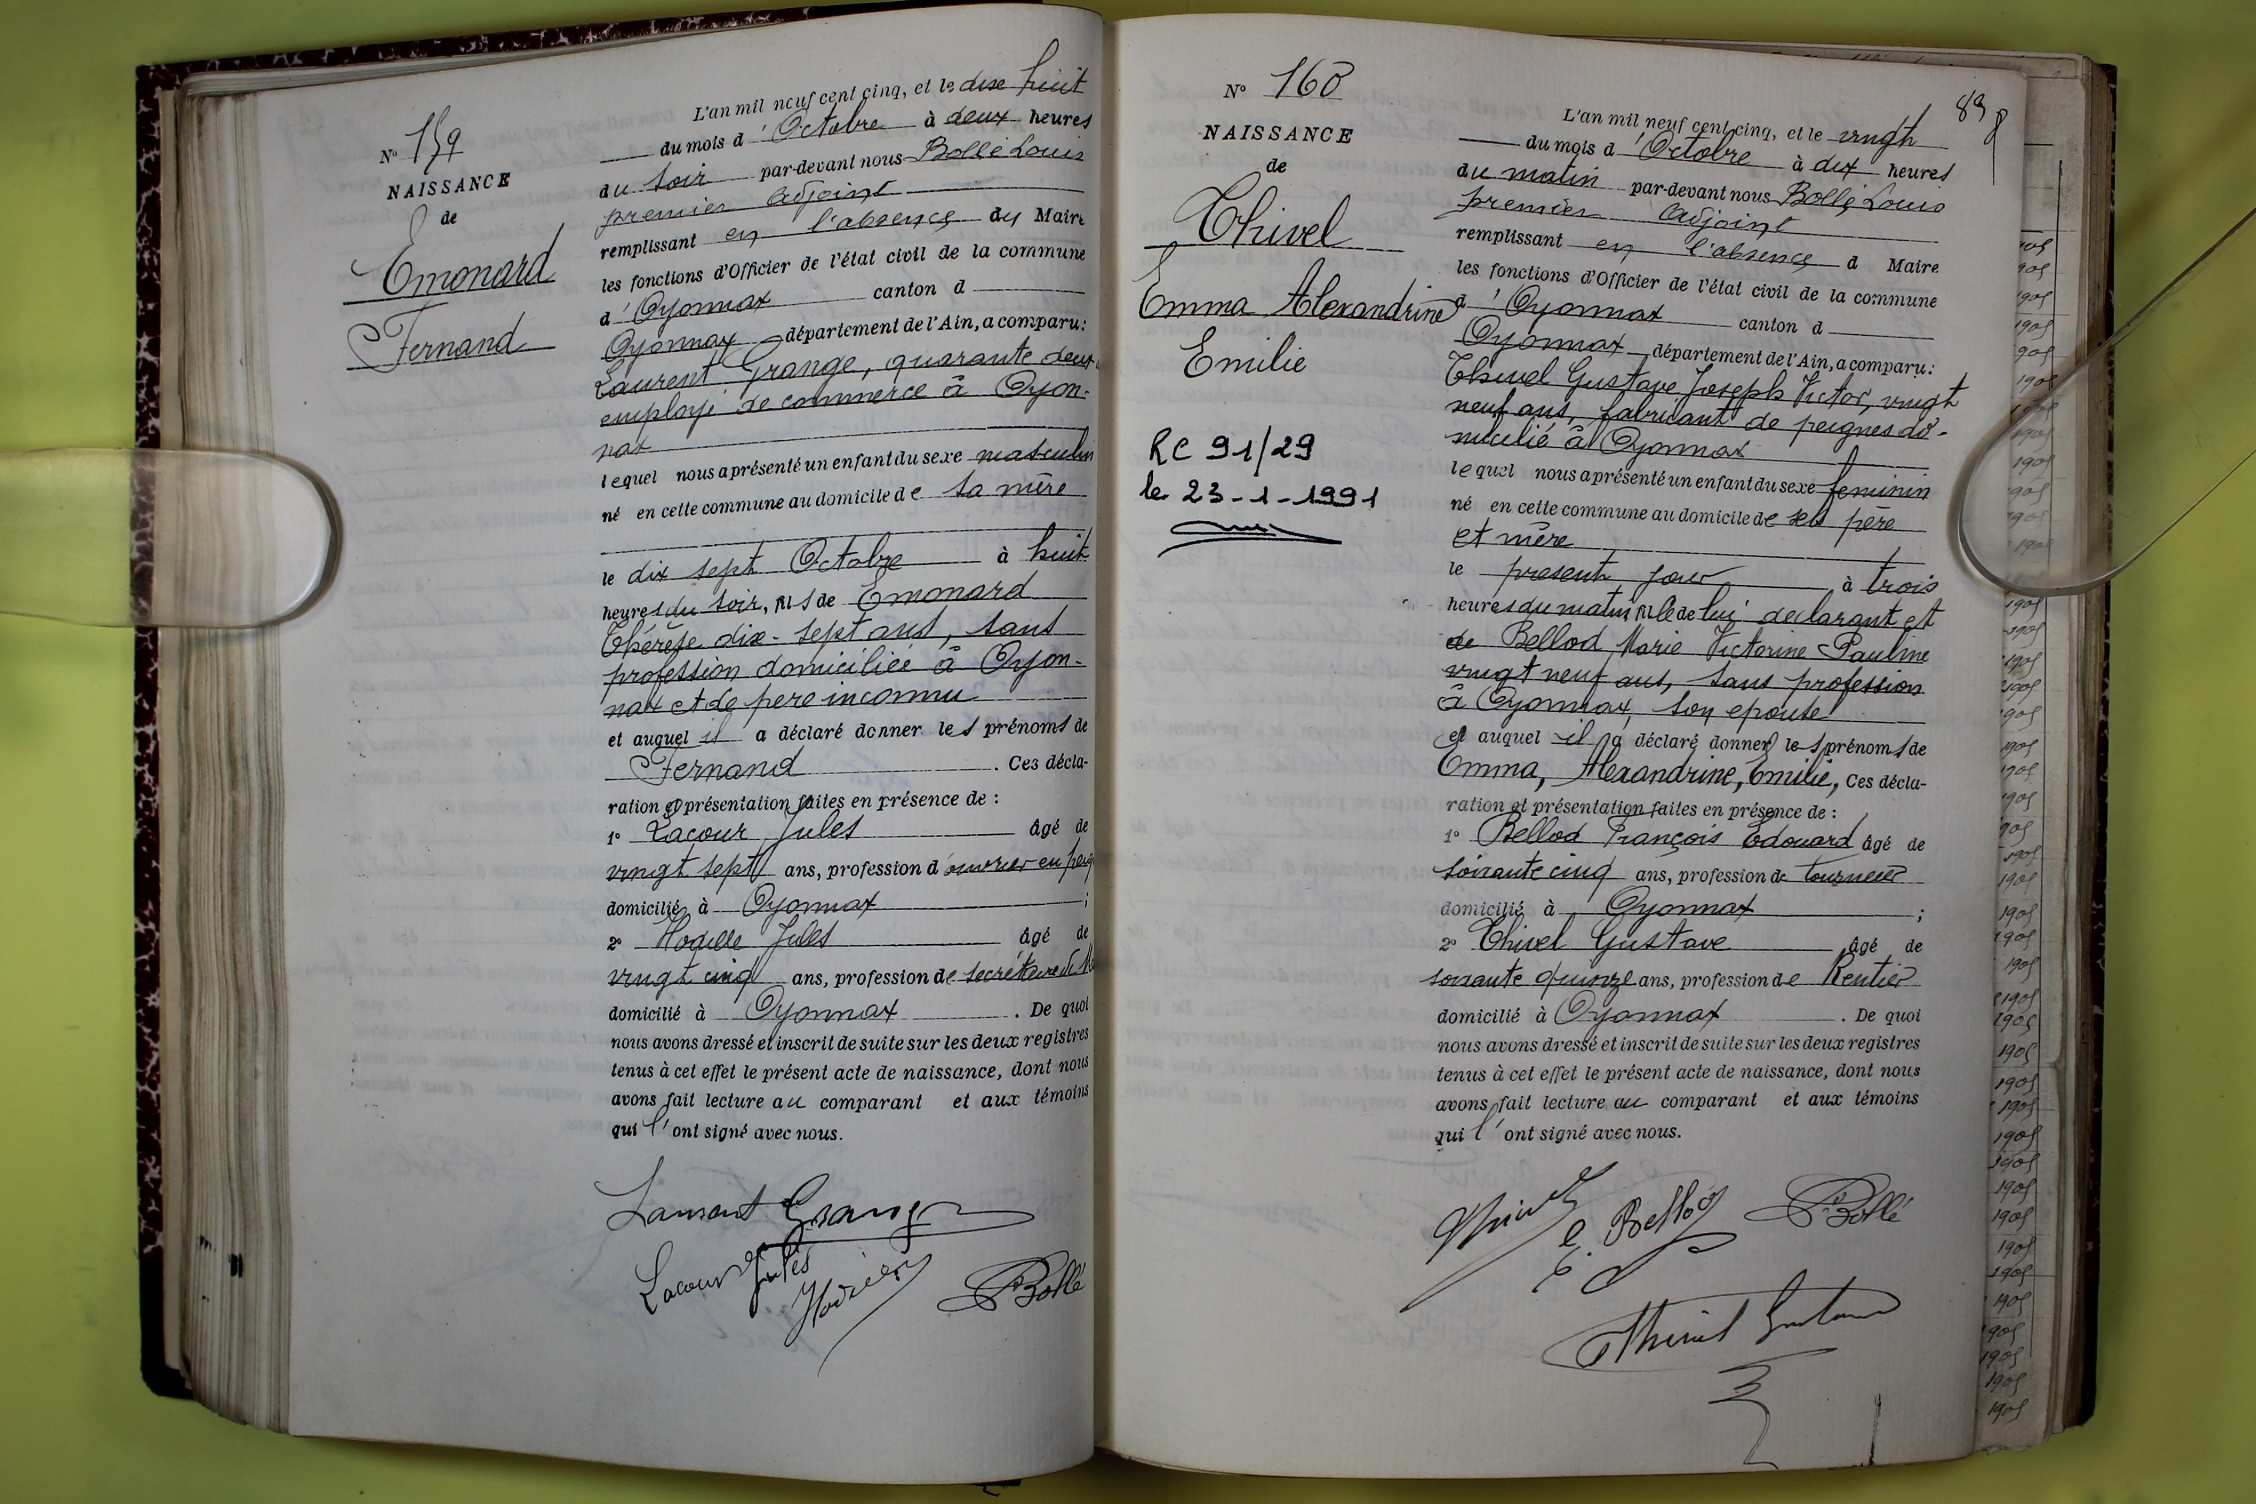 N° 159
NAISSANCE
de
Emonard
Fernand
L'an mil neuf cent cinq, et le dix huit
du mois d'Octobre à deux heures
du soir par-devant nous Bollé Louis
premier adjoint
remplissant en l'absence du Maire
les fonctions d'Officier de l'état civil de la commune
d'Oyonnax canton d
Oyonnax département de l'Ain, a comparu:
Laurent Grange, quarante deux
employé de commerce à Oyon-
nax
lequel nous a présenté un enfant du sexe masculin
né en cette commune au domicile de sa mère
le dix sept Octobre à huit
heures du soir, fils de Emonard
Thérèse dix-sept ans, sans
profession domiciliée à Oyon-
nax et de pere inconnu
et auquel il a déclaré donner les prénoms de
Fernand. Ces décla-
ration et présentation faites en présence de :
1° Lacour Jules âgé de
vingt sept ans, profession d'ouvrier en
domicilié à Oyonnax ;
2° Jules âgé de
vingt cinq ans, profession de secrétaire de
domicilié à Oyonnax. De quoi
nous avons dressé et inscrit de suite sur les deux registres
tenus à cet effet le présent acte de naissance, dont nous
avons fait lecture au comparant et aux témoins
qui l'ont signé avec nous.
Laurent Grange
Lacour Jules
Bollé
83
N° 160
NAISSANCE
de
Thivel
Emma Alexandrine
Emilie
RC 91/29
le 23-1-1991
L'an mil neuf cent cinq, et le vingt
du mois d'Octobre à dix heures
du matin par-devant nous Bollé Louis
premier adjoint
remplissant en l'absence d Maire
les fonctions d'Officier de l'état civil de la commune
d'Oyonnax canton d
Oyonnax département de l'Ain, a comparu:
Thivel Gustave Joseph Victor, vingt
neuf ans, fabricant de peignes do-
micilié à Oyonnax
lequel nous a présenté un enfant du sexe feminin
né en cette commune au domicile de ses père
et mère
le present jour à trois
heures du matin, fille de lui déclarant et
de Bellod Marie Victorine Pauline
vingt neuf ans, sans profession
à Oyonnax, son epouse
et auquel il a déclaré donner les prénoms de
Emma, Alexandrine, Emilie, Ces décla-
ration et présentation faites en présence de :
1° Bellod François Edouard âgé de
soixante cinq ans, profession de tourneur
domicilié à Oyonnax ;
2° Thivel Gustave âgé de
soixante quinze ans, profession de Rentier
domicilié à Oyonnax. De quoi
nous avons dressé et inscrit de suite sur les deux registres
tenus à cet effet le présent acte de naissance, dont nous
avons fait lecture au comparant et aux témoins
qui l'ont signé avec nous.
Thivel
E. Bellod
Bollé
Thivel Gustave